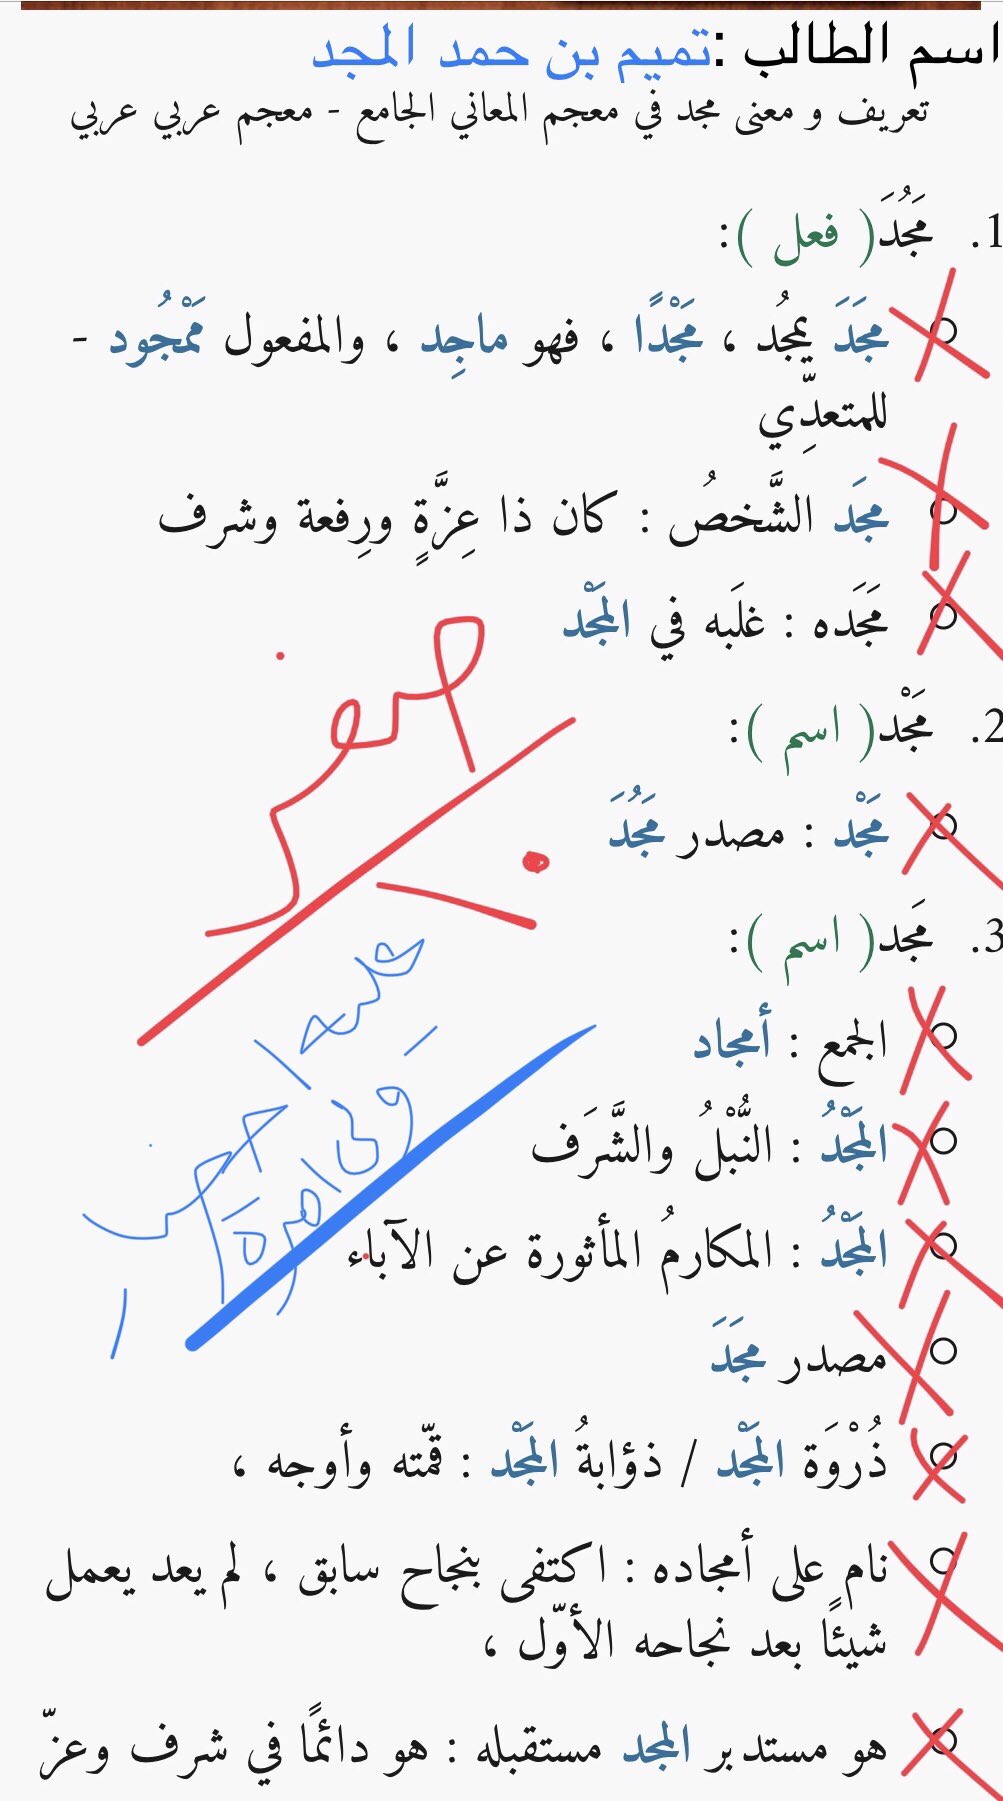 اسم الطالب :تميم بن حمد المجد
تعريف و معنى مجد في معجم المعاني الجامع - معجم عربي عربي
1. مَجُدَ( فعل ):
مجَدَ يمجُد ، مَجْدًا ، فهو ماجِد ، والمفعول مَمْجُود -
للمتعدِّي
مجَد الشَّخصُ : كان ذا عِزَّةٍ ورِفعة وشرف
مَجَده : غلَبه في المَجْد
2. مَجْد( اسم ):
مَجْد : مصدر مَجُدَ
3. مَجد( اسم ):
الجمع : أمجاد
المَجْدُ : النُّبْلُ والشَّرَف
المَجْدُ : المكارمُ المأثورة عن الآباء
مصدر مجَدَ
ذُرْوَة المَجْد / ذؤابةُ المَجْد : قمّته وأوجه ،
نام على أمجاده : اكتفى بنجاح سابق ، لم يعد يعمل
شيئًا بعد نجاحه الأوّل ،
هو مستدبر المجد مستقبله : هو دائمًا في شرف وعزّ